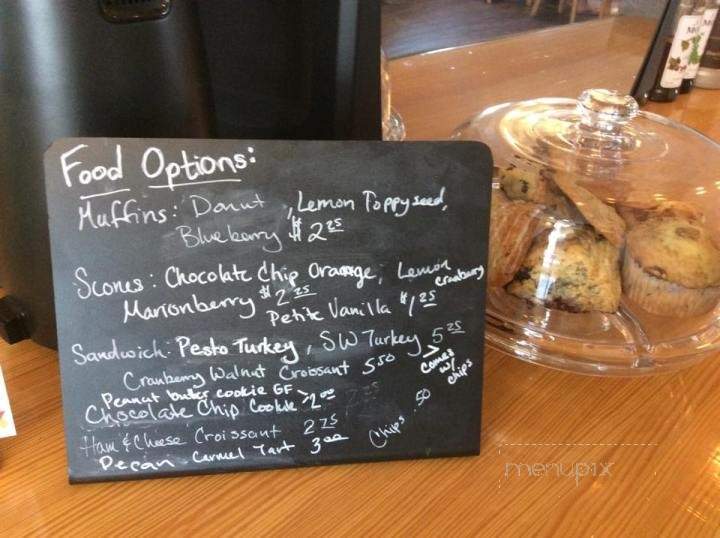 Food Options:
Muffins: Donut, Lemon Poppyseed,
Blueberry $2 25
Scones: Chocolate Chip Orange, Lemon cranberry
Marionberry $2 25
Petite Vanilla $1 25
Sandwich: Pesto Turkey, SW Turkey 5 25
Cranberry Walnut Croissant 5 50 > Comes w/ chips
Peanut butter cookie GF
Chocolate Chip Cookie > 2 00
Ham & Cheese Croissant 2 75
Chips .50
Pecan Carmel Tart 3 00
menupix